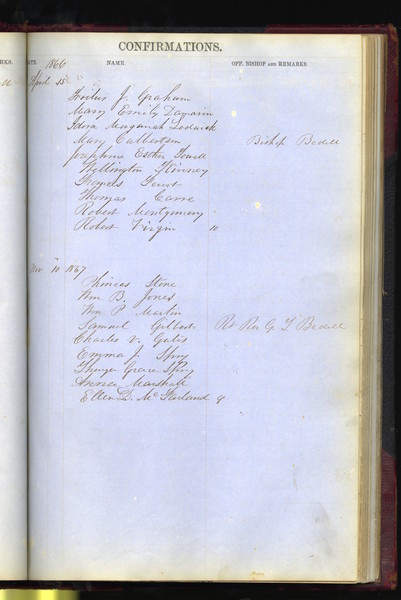 CONFIRMATIONS.
DATE. NAME. OFF. BISHOP AND REMARKS
1866
April 15
J. Graham
Mary Emily Damarin
Mary Culbertson Bishop Bedell
Josephine Esther Towell
Wellington Kinney
Thomas
Thomas Carre
Robert Montgomery
Robert Virgin 10
Nov 10 1867
Phineas Stone
Wm B. Jones
Wm P. Martin
Samuel Gilbert Rt Rev G T Bedell
Charles V. Gates
Emma J. Spry
Grace Spry
Annie Marshall
Ellen D. McFarland 9